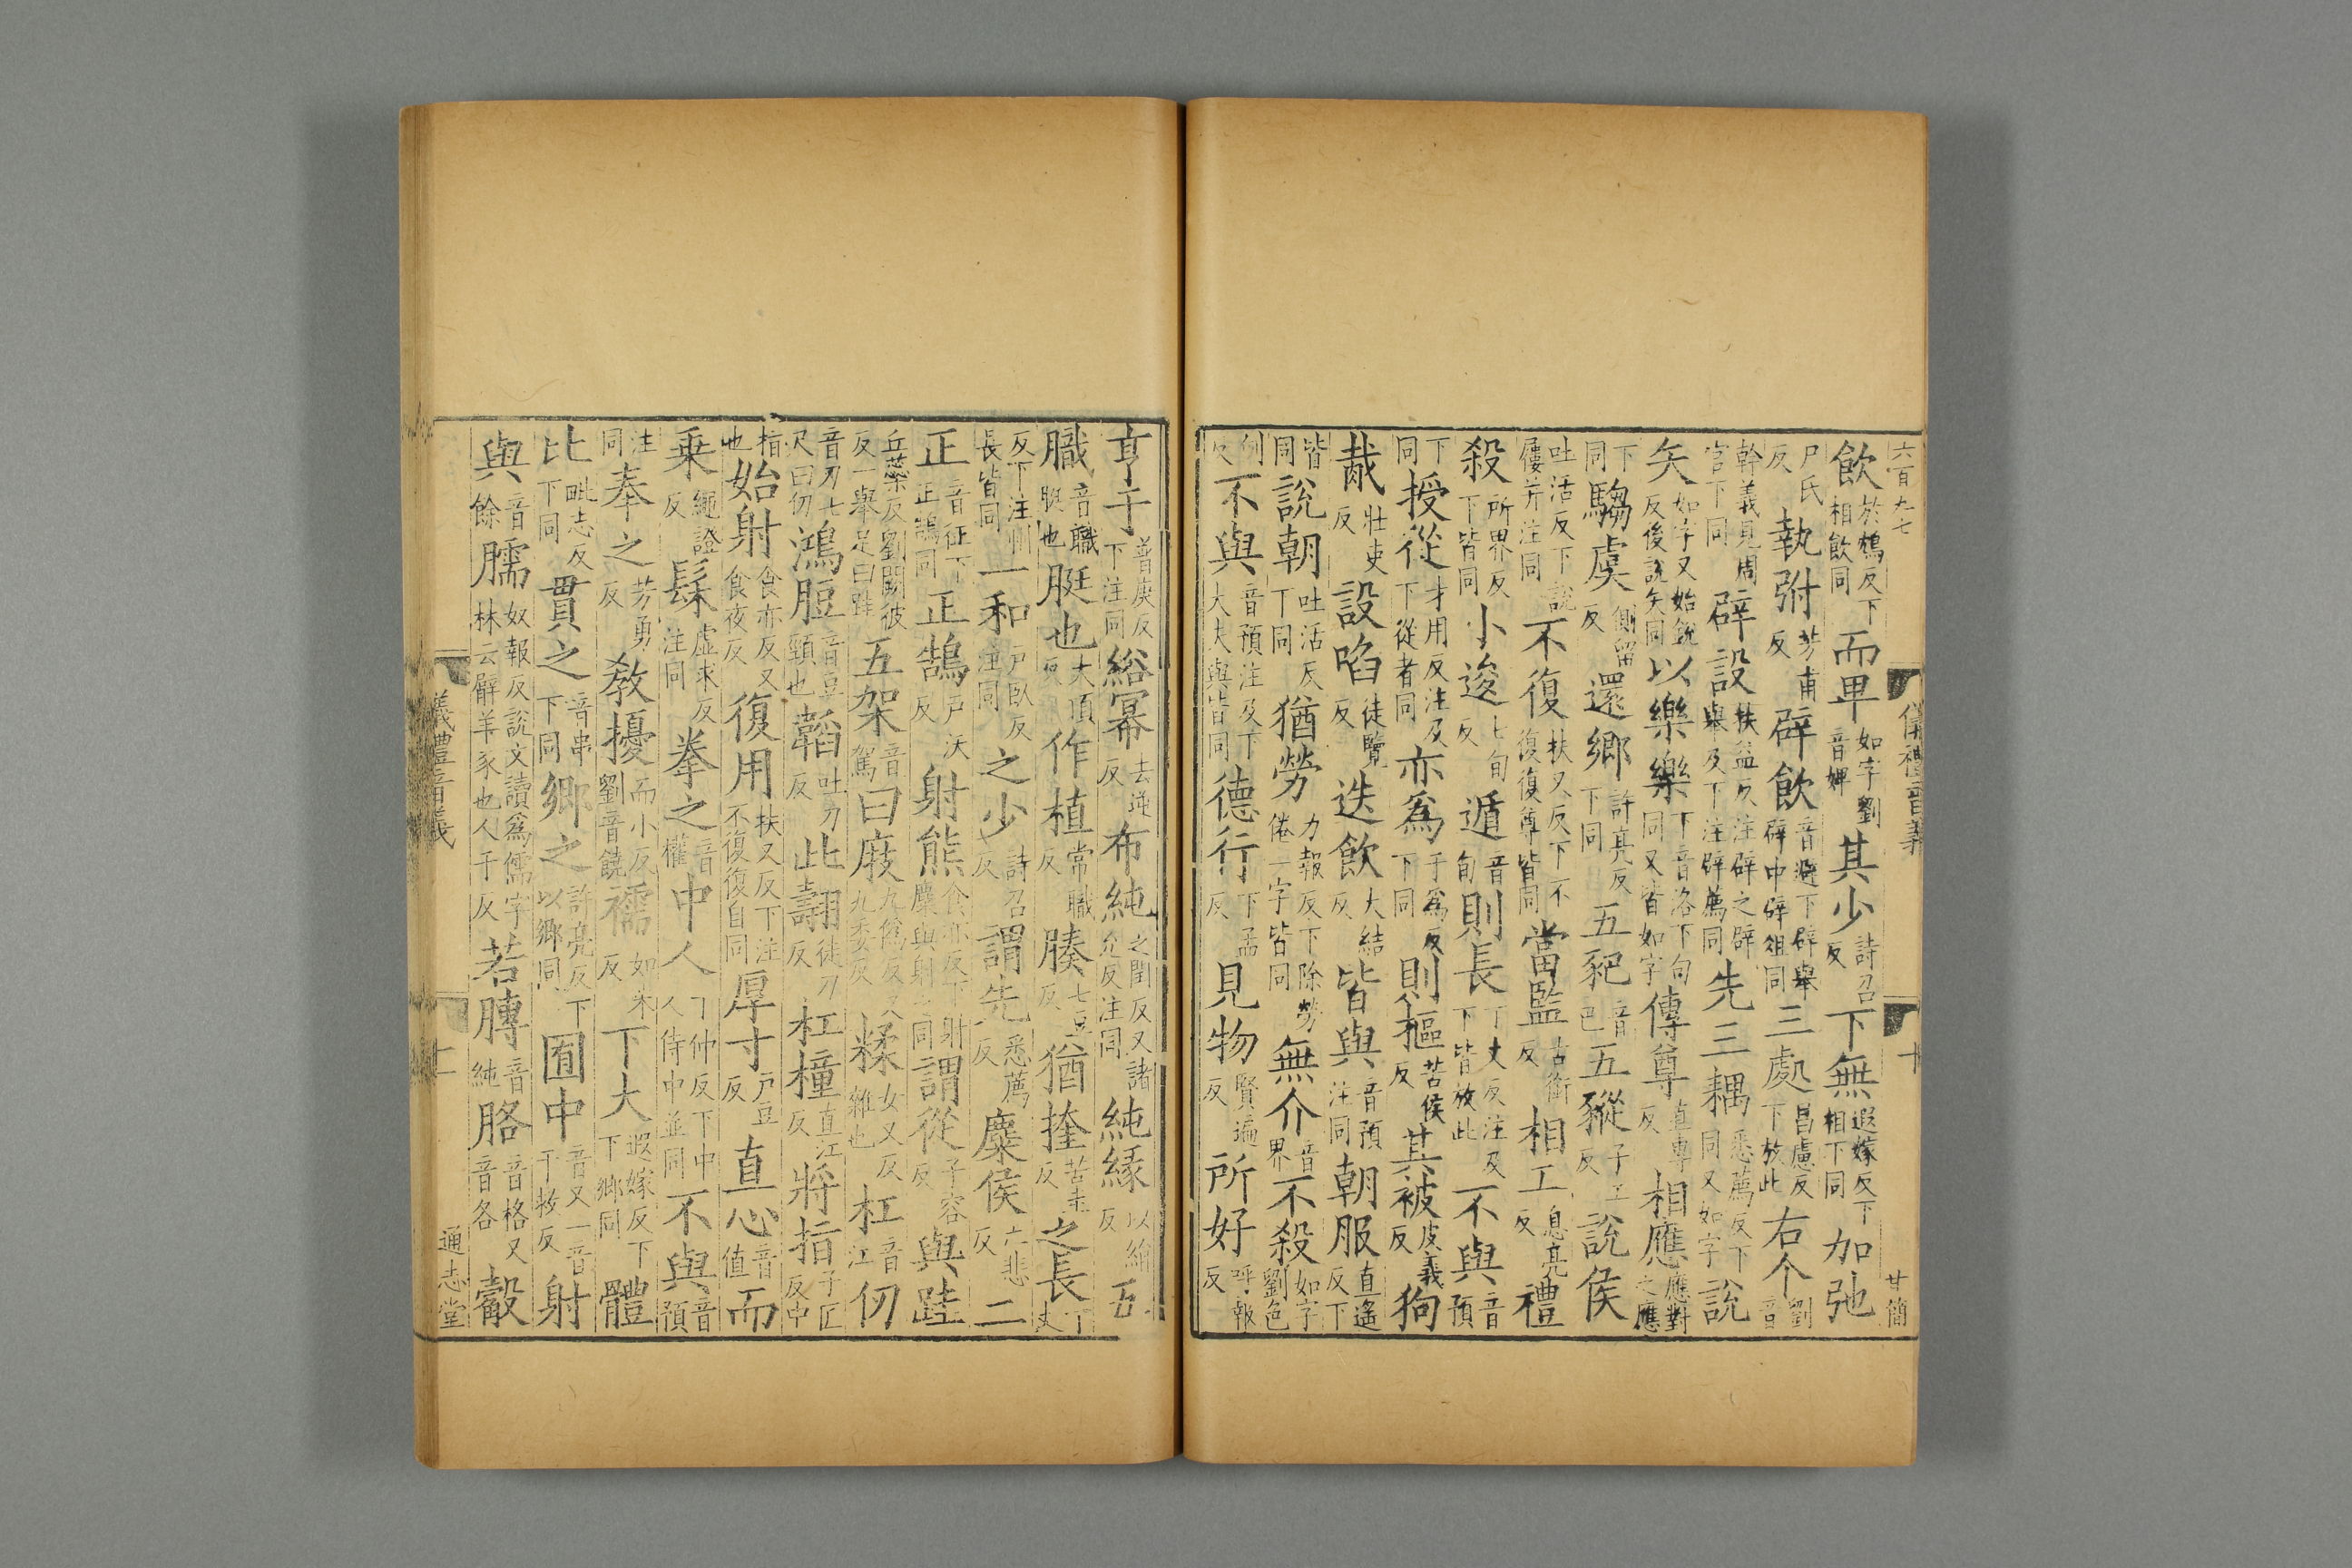 六百九七
儀禮音義
十
甘簡
飲於鴆反下相飲同而卑如字劉音婢其少詩召反下無遐嫁反下相下同加弛
尸氏反執弣芳甫反辟飲音避下辟舉辟中辟俎同三處昌慮反下放此右个劉音
幹義見周官下同辟設扶益反注辟之辟舉及下注辟薦同先三耦悉薦反下同又如字說
矢如字又始銳反後說矢同以樂樂下音洛下句同又皆如字傳尊直專反相應應對之應
下同騶虞側留反還鄉許亮反下同五豝音巴五豵子工反說侯
吐活反下說屨并注同不復扶又反下不復復尊皆同當監古銜反相工息亮反禮
殺所界反下皆同小逡七旬反遁音旬則長丁丈反注及下皆放此不與音預
下同授從才用反注及下從者同亦為于為反下同則樞苦侯反其被皮義反狗
胾壯吏反設啗徒覽反迭飲大結反皆與音預注同朝服直遙反下
皆同說朝吐活反丁同猶勞力報反下除勞倦一字皆同無介音界不殺如字劉色
例反不與音預注及下大夫與皆同德行下孟反見物賢遍反所好呼報反
亨于普庚反下注同綌冪去逆反布純之閏反又諸允反注同純緣以絹反五
職音職脡也脡也大頂反作植常職反腠七豆反猶挂苦圭反之長丁丈
反下注州長皆同一和戶臥反注同之少詩召反謂先悉薦反麋侯亡悲反二
正音征下正鵠同正鵠戶沃反射熊食亦反下射麋與射同謂從子容反與跬
丘蘂反劉闚彼反一舉足曰跬五架音駕曰庪九偽反又九委反糅女又反雜也杠音江仞
音刃七尺曰仞鴻脰音豆頸也韜吐刀反此翿徒刀反杠橦直江反將指子匠反中
指也始射食亦反又食夜反復用扶又反下注不復復自同厚寸戶豆反直心音值而
乘繩證反髹虛求反注同拳之音權中人丁仲反下中人侍中並同不與音預
注同奉之芳勇反教擾而小反劉音饒襦如朱反下大遐嫁反下下鄉同體
比毗志反下同貫之音串下同鄉之許亮反下以鄉同囿中音又一音于救反射
與音餘臑奴報反說文讀為儒字林云臂羊豕也人于反若膞音純胳音格又音各觳
儀禮音義
十一
通志堂